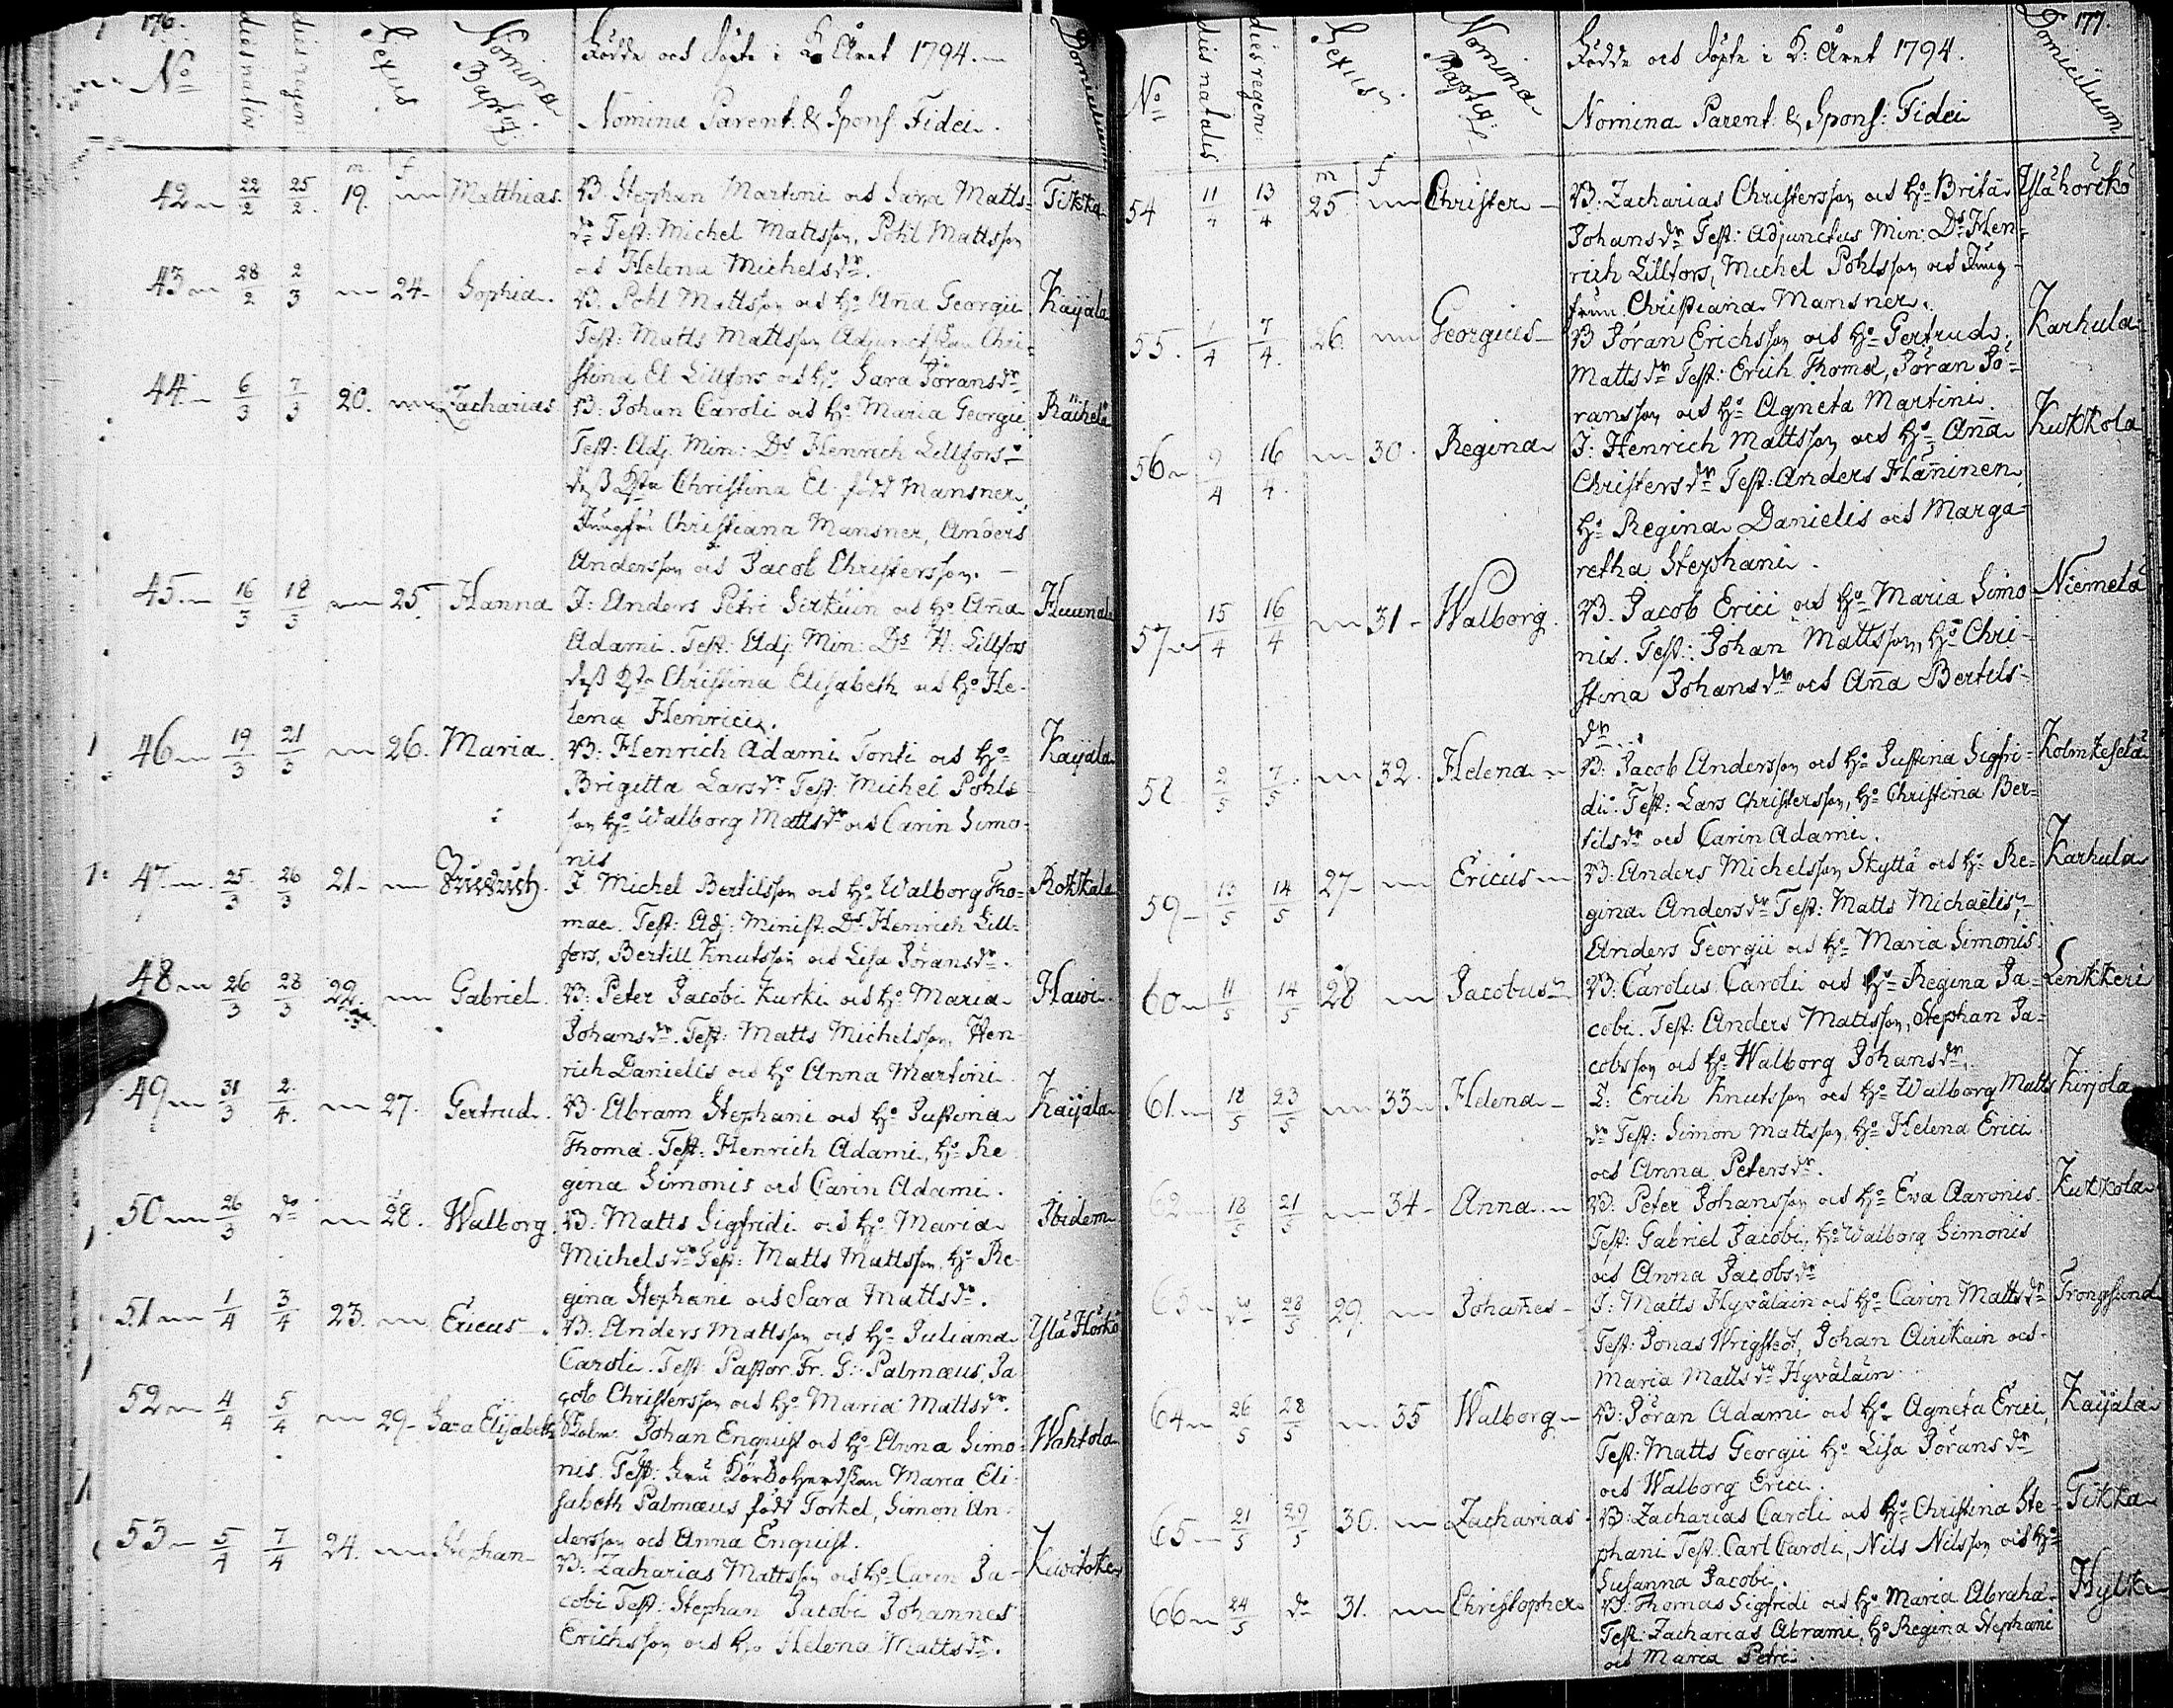 176.
No
dies natalis
dies regen
Sexus
Nomina Baptiz:
Födde och döpte i Året 1794.
Nomina Parent: & Spons: Fidei.
Domicilium
m. f
42 22/2 25/2. 19. Matthias. B. Stephan Martini och Sara Matts= Tikka
dr Test: Michel Matsson, Pohl Mattsson
och Helena Michelsdr.
43 28/2 2/3 24 Sophia. B. Pohl Mattsson och Ho Ana Georgii Kaÿala
Test: Matts Mattsson Adjunct Chri=
stina El Lillfors och Ho Sara Jöransdr
44 6/3 7/3 20. Zacharias B: Johan Caroli och Ho Maria Georgii Räihelä
Test: Adj. Min: Ds Henrich Lillfors
Christina El född Mansner,
Jungfru Christiana Mansner, Anders
Andersson och Jacob Christersson.
45. 16/3 18/3 25 Hanna I: Anders Petri Sirkuin och Ho Anna Huunala
Adami. Test: Adj: Min: Ds H: Lillfors
Christina Elisabeth och Ho He-
lena Henrici.
46 19/3 21/3 26. Maria. B: Henrich Adami Tonti och Ho Kaÿala
Brigitta Larsdr Test: Michel Pohls
son Ho Walborg Mattsdr och Carin Simo-
nis
47. 25/3 26/3 21 I Michel Bertilsson och Ho Walborg Tho= Rokkala
mae. Test: Adj: Minist: Ds Henrich Lill=
fors, Bertill Knutsson och Lisa Jöransdr.
48 26/3 28/3 22. Gabriel. B: Peter Jacobi Kurki och Ho Maria Hawi
Johansdr. Test: Matts Michelsson, Hen-
rich Danielis och Ho Anna Martini.
49 31/3 2/4. 27. Gertrud. B. Abram Stephani och Ho Justina Kaÿala
Thomä. Test: Henrich Adami, Ho Re
gina Simonis och Carin Adami.
50 26/3 do 28. Walborg. B: Matts Sigfridi och Ho Maria Ibidem
Michelsdr Test: Matts Mattsson, Ho Re-
gina Stephani och Sara Mattsdr.
51 1/4 3/4 23. Ericus B: Anders Mattsson och Ho Juliana Ylä Horkö
Caroli. Test: Pastor Fr. G: Palmæus, Ja
cob Christersson och Ho Maria Mattsdr.
52 4/4 5/4 29 Sara Elisabeth Johan Enquist och Ho Anna Simo- Wahtola
nis. Test: Maria Eli-
sabeth Palmæus född Torkel, Simon An-
dersson och Anna Enquist.
53 5/4 7/4 24. Stephan B: Zacharias Mattsson och Ho Carin Ja- Kiwitoke
cobi Test: Stephan Jacobi Johannes
Erichsson och Ho Helena Mattsdr.
177.
No
dies natalis
dies regen:
Sexus
Nomina Baptiz:
Födde och döpte i Året 1794.
Nomina Parent: & Spons: Fidei
Domicilium
m f
54 11/4 13/4 25 Christer B: Zacharias Christersson och Ho Brita Ylä horckö
Johansdr Test: Adjunctus Min: Ds Hen-
rich Lillfors, Michel Pohlsson och Jung-
frun Christiana Mansner.
55. 1/4 7/4. 26. Georgius B Jöran Erichsson och Ho Gertrud Karhula
Mattsdr Test: Erich Thomä, Jöran Jö-
ransson och Ho Agneta Martini
56 9/4 16/4. 30. Regina I: Henrich Mattsson och Ho Anna Kukkola
Christersdr Test: Anders Hänninen,
Ho Regina Danielis och Marga=
retha Stephani.
57 15/4 16/4 31 Walborg. B. Jacob Erici och Ho Maria Simo Niemelä
nis. Test: Johan Mattsson, Ho Chri-
stina Johansdr och Anna Bertils-
dr
58 2/5 7/5. 32. Helena B: Jacob Andersson och Ho Justina Sigfri- Kolmikeselä
di. Test: Lars Christersson, Ho Christina Ber=
tilsdr och Carin Adami.
59 13/5 14/5 27 Ericus B: Anders Michelsson Skyttä och Ho Re- Karhula
gina Andersdr Test: Matts Michaëlis,
Anders Georgii och Ho Maria Simonis
60 11/5 14/5 28 Jacobus B: Carolus Caroli och Ho Regina Ja- Lenkkeri
cobi. Test: Anders Mattsson, Stephan Ja=
cobsson och Ho Walborg Johansdr.
61 18/5 23/5 33 Helena Erich Knutsson och Ho Walborg Matts Kirjola
dr Test: Simon Mattsson, Ho Helena Erici
och Anna Petersdr.
62 18/5 21/5 34 Anna B: Peter Johansson och Ho Eva Aaronis Kukkola
Test: Gabriel Jacobi, Ho Walborg Simonis
och Anna Jacobsdr
63 28/5 29. Johannes I: Matts Hyväläin och Ho Carin Mattsdr Trongsund
Test: Jonas Wrigstedt, Johan Airikain och
Maria Mattsdr Hyväläin
64 26/5 28/5 35 Walborg B: Jöran Adami och Ho Agneta Erici, Kaÿala
Test: Matts Georgii Ho Lisa Jöransdr
och Walborg Erici.
65 21/5 29/5 30. Zacharias B: Zacharias Caroli och Ho Christina Ste- Tikka
phani Test: Carl Caroli, Nils Nilsson och Ho
Susanna Jacobi.
66 24/5 do 31. Christopher B: Thomas Sigfridi och Ho Maria Abraha- Hylke
Test: Zacharias Abrami, Ho Regina Stephani
och Maria Petri.